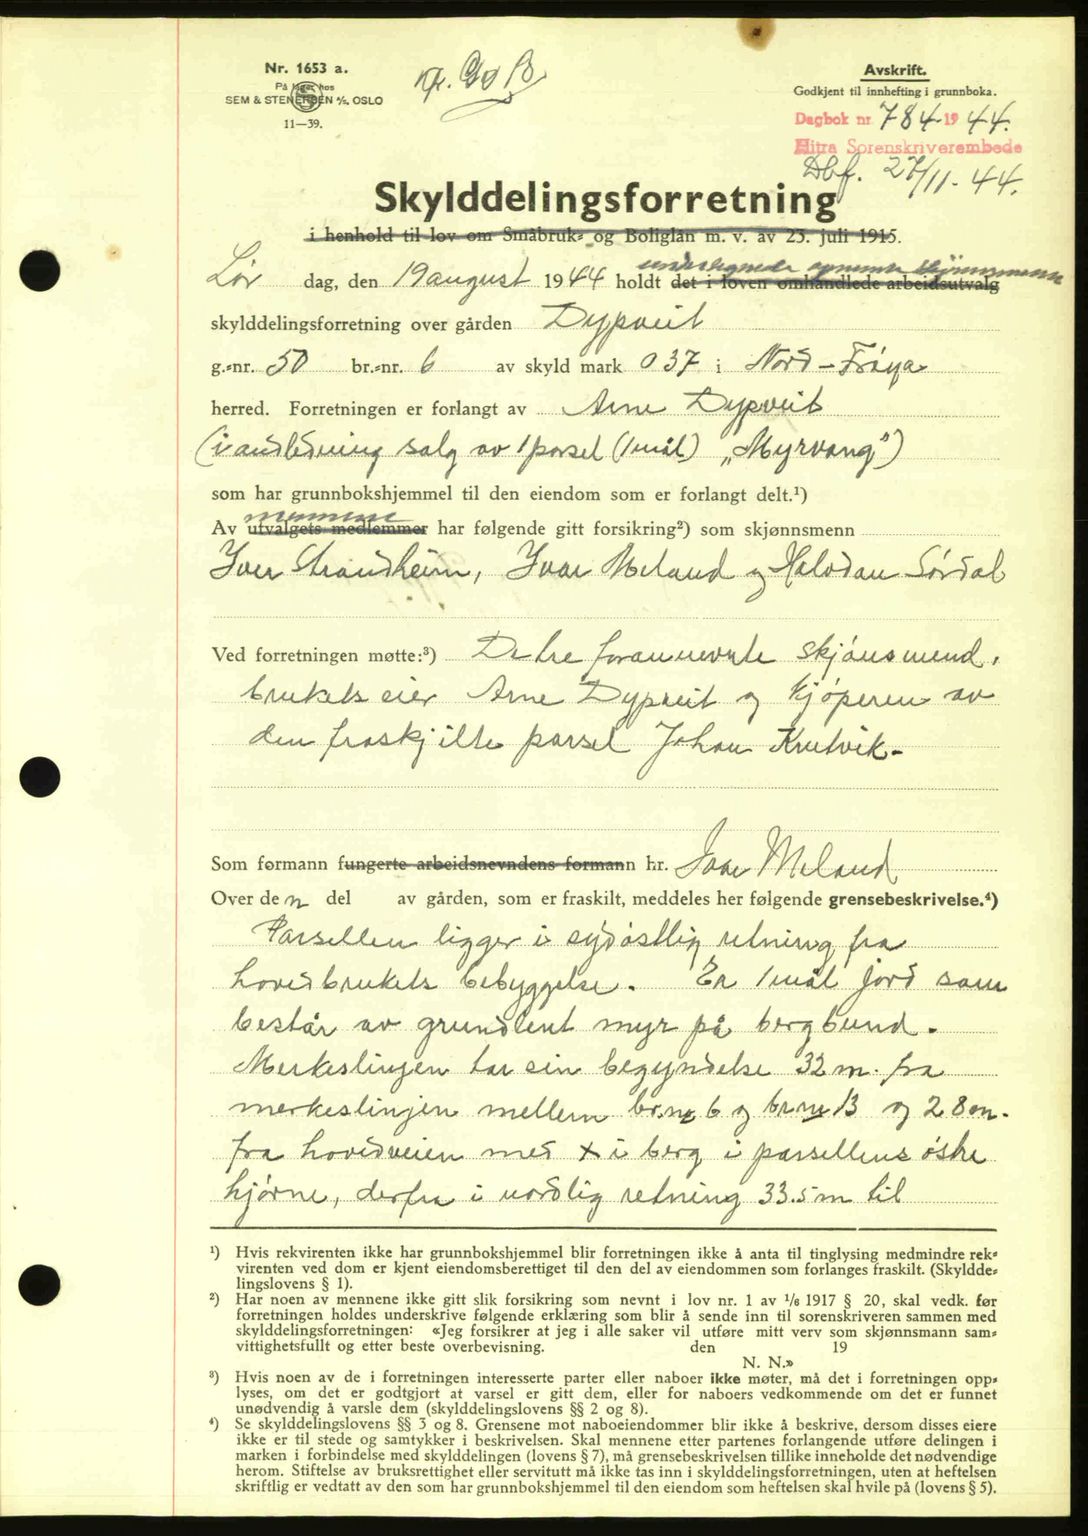 Nr. 1653 a.
På lager hos
SEM & STENERSEN A/S. OSLO
11—39.
Avskrift.
Godkjent til innhefting i grunnboka.
Dagbok nr 784 1944.
Hitra Sorenskriverembede
Dbf. 27/11-44.
Skylddelingsforretning
i henhold til lov om Småbruk- og Boliglån m. v. av 23. juli 1915.
undertegnede
Lør dag, den 19 august 1944 holdt det i loven omhandlede arbeidsutvalg
skylddelingsforretning over gården Dypveit
g.-nr. 50 br.-nr. 6 av skyld mark 0 37 i Nord-Frøya
herred. Forretningen er forlangt av Arne Dypveit
(i andledning salg av 1 parsel (1 mål) „Myrvang")
som har grunnbokshjemmel til den eiendom som er forlangt delt.¹)
mennene
Av utvalgets medlemmer har følgende gitt forsikring²) som skjønnsmenn
Iver Strandheim, Ivar Meland og Halvdan Sørdal
Ved forretningen møtte:³) De tre forannevnte skjönsmend,
brukets eier Arne Dypveit og kjöperen av
den fraskjilte parsel Johan Krutvik-
Som formann fungerte arbeidsnevndens formann hr. Ivar Meland
Over den del av gården, som er fraskilt, meddeles her følgende grensebeskrivelse.⁴)
Parsellen ligger i sydöstlig retning fra
hovedbrukets bebyggelse. Er 1 mål jord som
består av grundlent myr på bergbund.
Merkeslinjen tar sin begyndelse 32 m. fra
merkeslinjen mellem br.nr 6 og br.nr 13 og 28 m.
fra hovedveien med x i berg i parsellens östre
hjörne, derfra i nordlig retning 33.5 m til
¹) Hvis rekvirenten ikke har grunnbokshjemmel blir forretningen ikke å anta til tinglysing medmindre rek-
virenten ved dom er kjent eiendomsberettiget til den del av eiendommen som forlanges fraskilt. (Skyldde-
lingslovens § 1).
²) Har noen av mennene ikke gitt slik forsikring som nevnt i lov nr. 1 av 1/6 1917 § 20, skal vedk. før
forretningen holdes underskrive følgende erklæring som blir å sende inn til sorenskriveren sammen med
skylddelingsforretningen: «Jeg forsikrer at jeg i alle saker vil utføre mitt verv som skjønnsmann sam-
vittighetsfullt og etter beste overbevisning. den 19
N. N.»
³) Hvis noen av de i forretningen interesserte parter eller naboer ikke møter, må det i forretningen opp-
lyses, om det er godtgjort at varsel er gitt dem, eller for naboers vedkommende om det er funnet
unødvendig å varsle dem (skylddelingslovens §§ 2 og 8).
⁴) Se skylddelingslovens §§ 3 og 8. Grensene mot naboeiendommer blir ikke å beskrive, dersom disses eiere
ikke er til stede og samtykker i beskrivelsen. Skal mennene etter partenes forlangende utføre delingen i
marken i forbindelse med skylddelingen (lovens § 7), må grensebeskrivelsen tillike inneholde det nødvendige
herom. Stiftelse av bruksrettighet eller servitutt må ikke tas inn i skylddelingsforretningen, uten at heftelsen
skriftlig er vedtatt av den som har grunnbokshjemmel til den eiendom som heftelsen skal hvile på (lovens § 5).